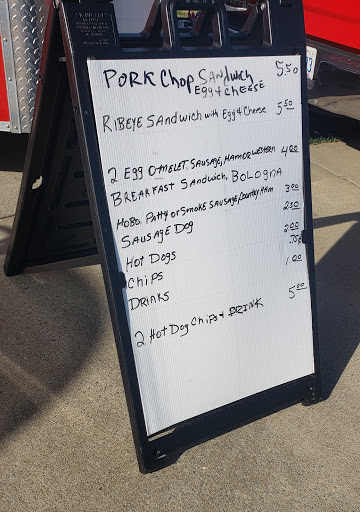 PORK Chop SANdwich 5.50
Egg & CHEESE
RIBEYE SANdwich with Egg & Cheese 5.50
2 Egg OMELET, SAUSAGE, HAM OR WESTERN 4.00
BREAKFAST SANdwich, BOLOGNA
HOBO Patty or SMOKE SAUSAGE/Country HAM 3.00
SAUSAGE DOg 2.50
HOT DOgs 2.00
CHiPS .75¢
DRINKS 1.00
2 HOT Dog CHiPS & DRINK 5.00